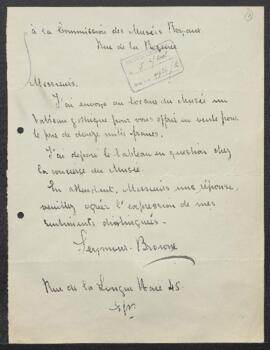 à la Commission des Musées Royaux
Rue de la Régence
Messieurs.
J'ai envoyé au local du Musée un
tableau gothique pour vous offrir en vente pour
le prix de douze mille francs.
J'ai déposé le tableau en question chez
la concierge du Musée.
En attendant, Messieurs une réponse,
veuillez agréer l'expression de mes
sentiments distingués.
Seymour-Browne
Rue de la Longue Haie 45.